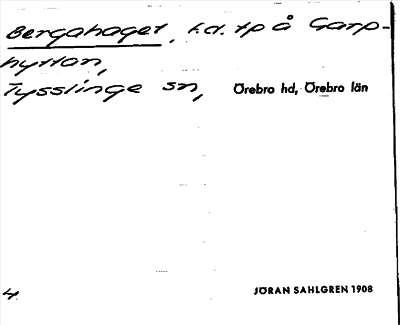 Bergahaget, f.d. tp å Garp-
hyttan,
Tysslinge sn, Örebro hd, Örebro län
4. JÖRAN SAHLGREN 1908